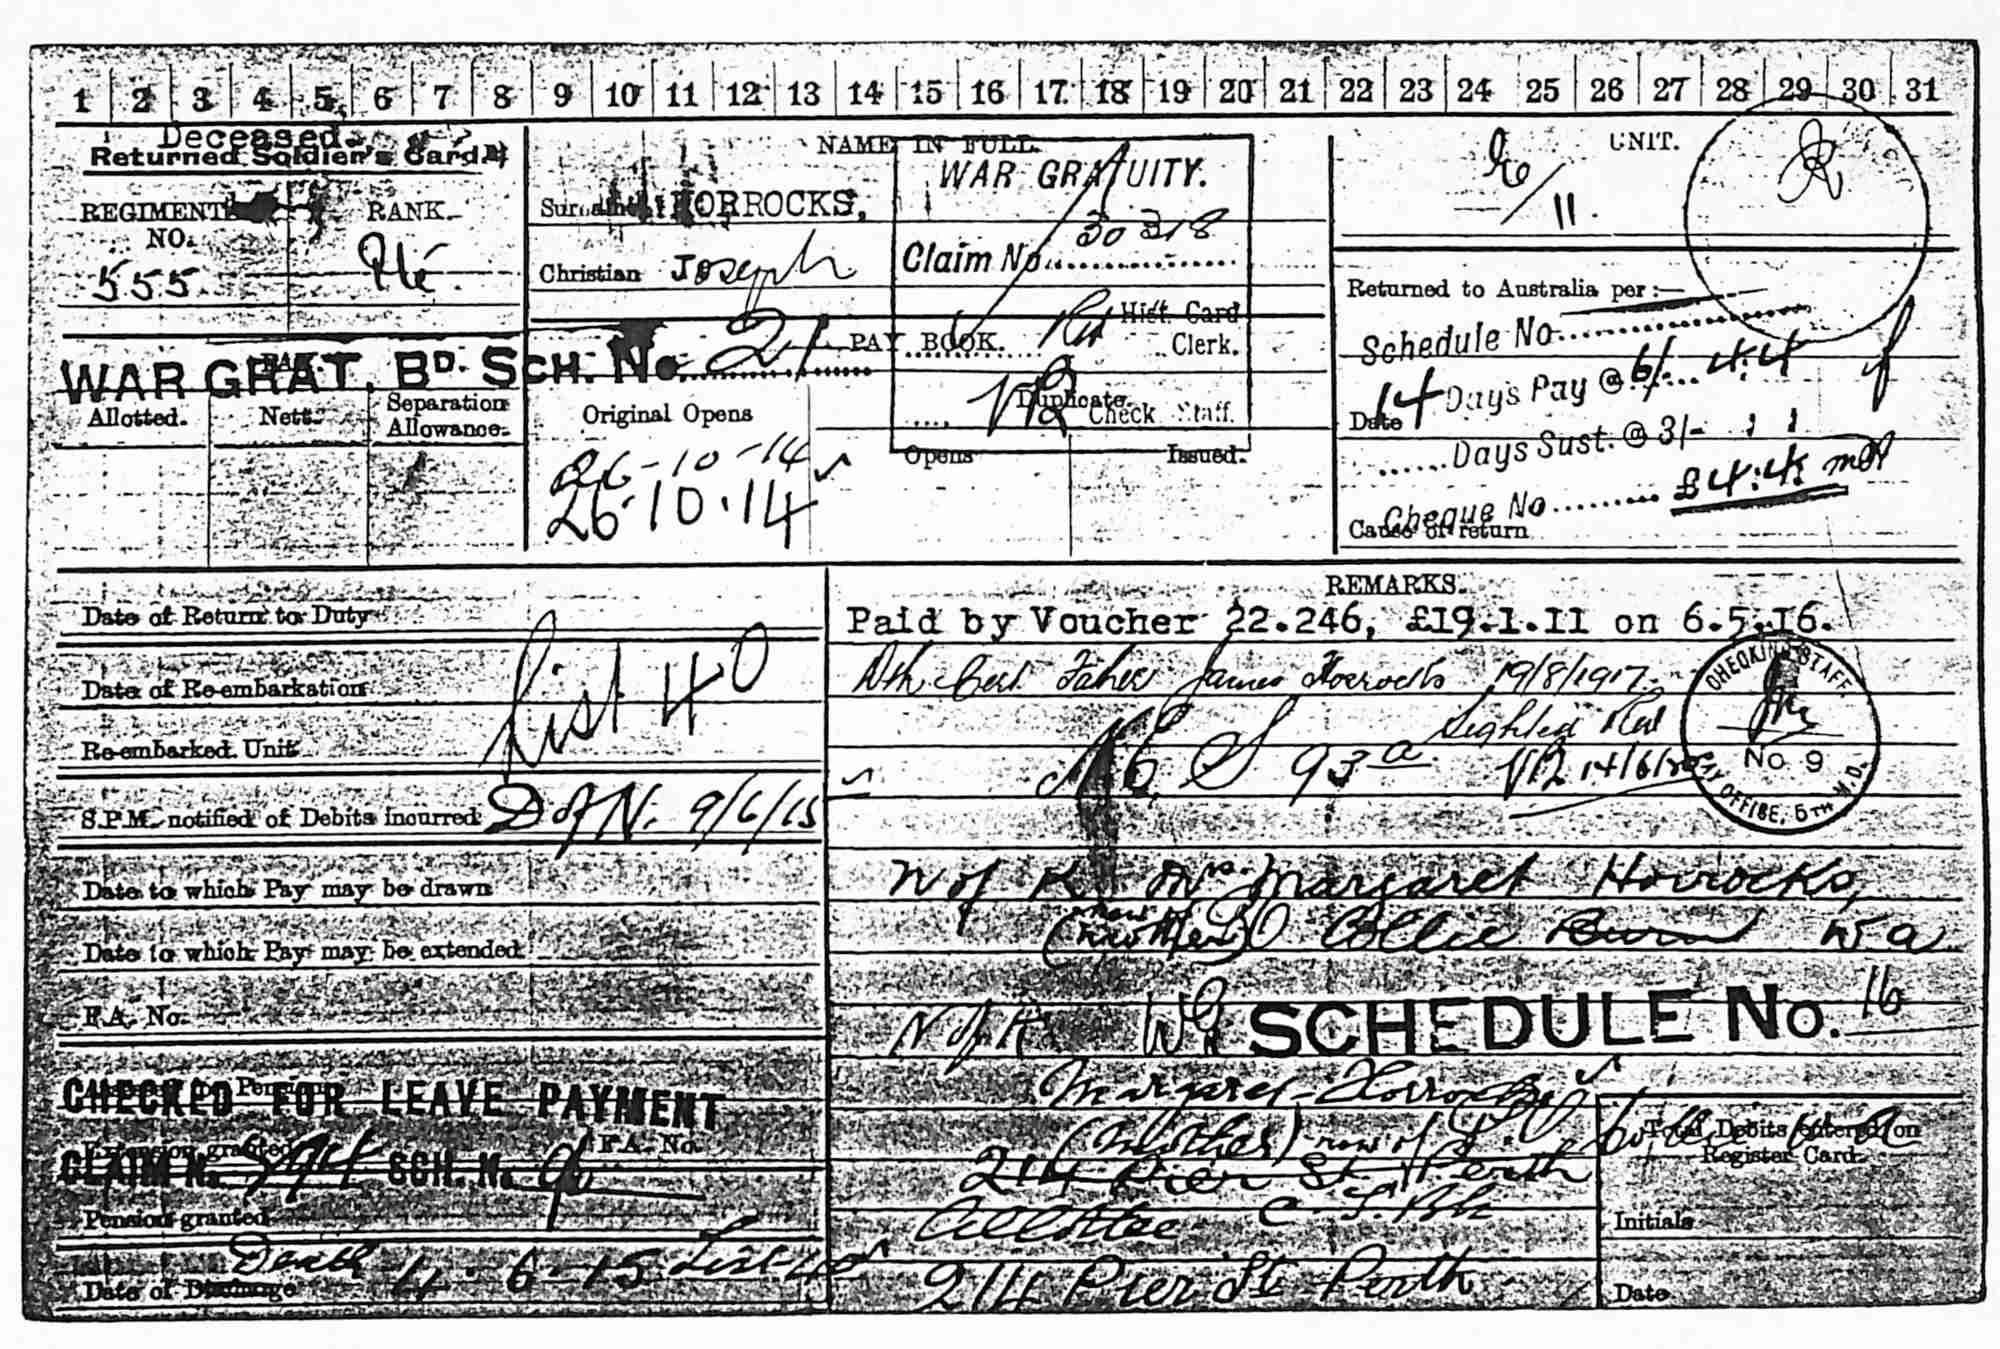 1 2 3 4 5 6 7 8 9 10 11 12 13 14 15 16 17 18 19 20 21 22 23 24 25 26 27 28 29 30 31
Deceased
Returned Soldier's Card.
REGIMENTAL NO.
RANK.
555
Pte.
NAME IN FULL.
Surname HORROCKS,
Christian Joseph
WAR GRATUITY.
Claim No. 30318
Hist. Card
Clerk.
Check Staff.
UNIT.
/11.
Returned to Australia per:—
Schedule No
14 Days Pay @ 6/- 4.4
Date
Days Sust. @ 3/-
Cheque No £4.4.
Cause of return
WAR GRAT. BD. SCH. No. 21
PAY BOOK.
Allotted.
Nett.
Separation Allowance.
Original Opens
Duplicate.
Opens
Issued.
26-10-14
26.10.14
Date of Return to Duty
Date of Re-embarkation
List 40
Re-embarked Unit
S.P.M. notified of Debits incurred D of N. 9/6/15
Date to which Pay may be drawn
Date to which Pay may be extended
F.A. No.
CHECKED FOR LEAVE PAYMENT
Extension granted
F.A. No.
CLAIM No. 394 SCH. No. 9
Pension granted
Death
Date of Discharge 4.6.15 List 40
REMARKS.
Paid by Voucher 22.246, £19.1.11 on 6.5.16.
Dth Cert Father James Horrocks 19/8/1917
Sighted
93a
14/6/20
CHECKING STAFF
No 9
PAY OFFICE, 5TH M.D.
N of K Mrs. Margaret Horrocks,
(mother) Collie Burn W a
N of K WG SCHEDULE No. 16
Margaret Horrocks
(mother) now of
214 Pier St Perth
Allottee
214 Pier St Perth
Total Debits entered on
Register Card.
Initials
Date